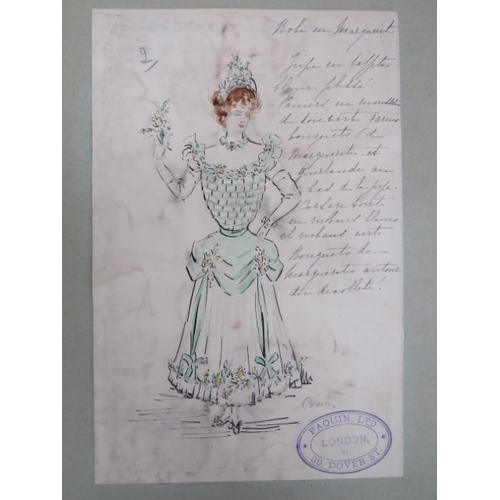 2,
Robe en Marguerit
Jupe en taffetas
blanc plissé.
Paniers en
de
bouquets de
marguerites et
guirlande au
bas de la jupe.
Corsage tout
en rubans blancs
et rubans verts
Bouquets de
marguerites autour
du decolleté.
PAQUIN, LTD
LONDON,
W.
39, DOVER ST.